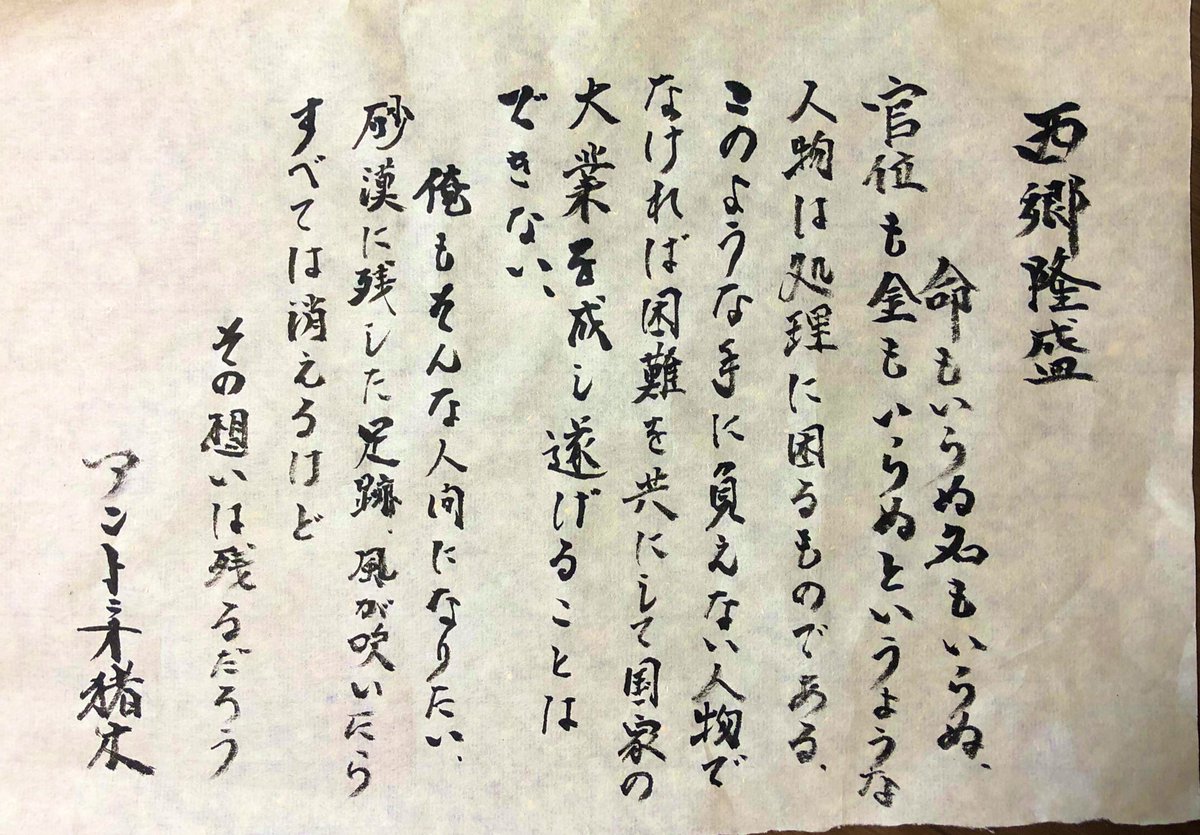 西郷隆盛
命もいらぬ名もいらぬ、
官位も金もいらぬというような
人物は処理に困るものである、
このような手に負えない人物で
なければ困難を共にして国家の
大業を成し遂げることは
できない、
俺もそんな人間になりたい、
砂漠に残した足跡、風が吹いたら
すべては消えるけど
その想いは残るだろう
アントニオ猪木